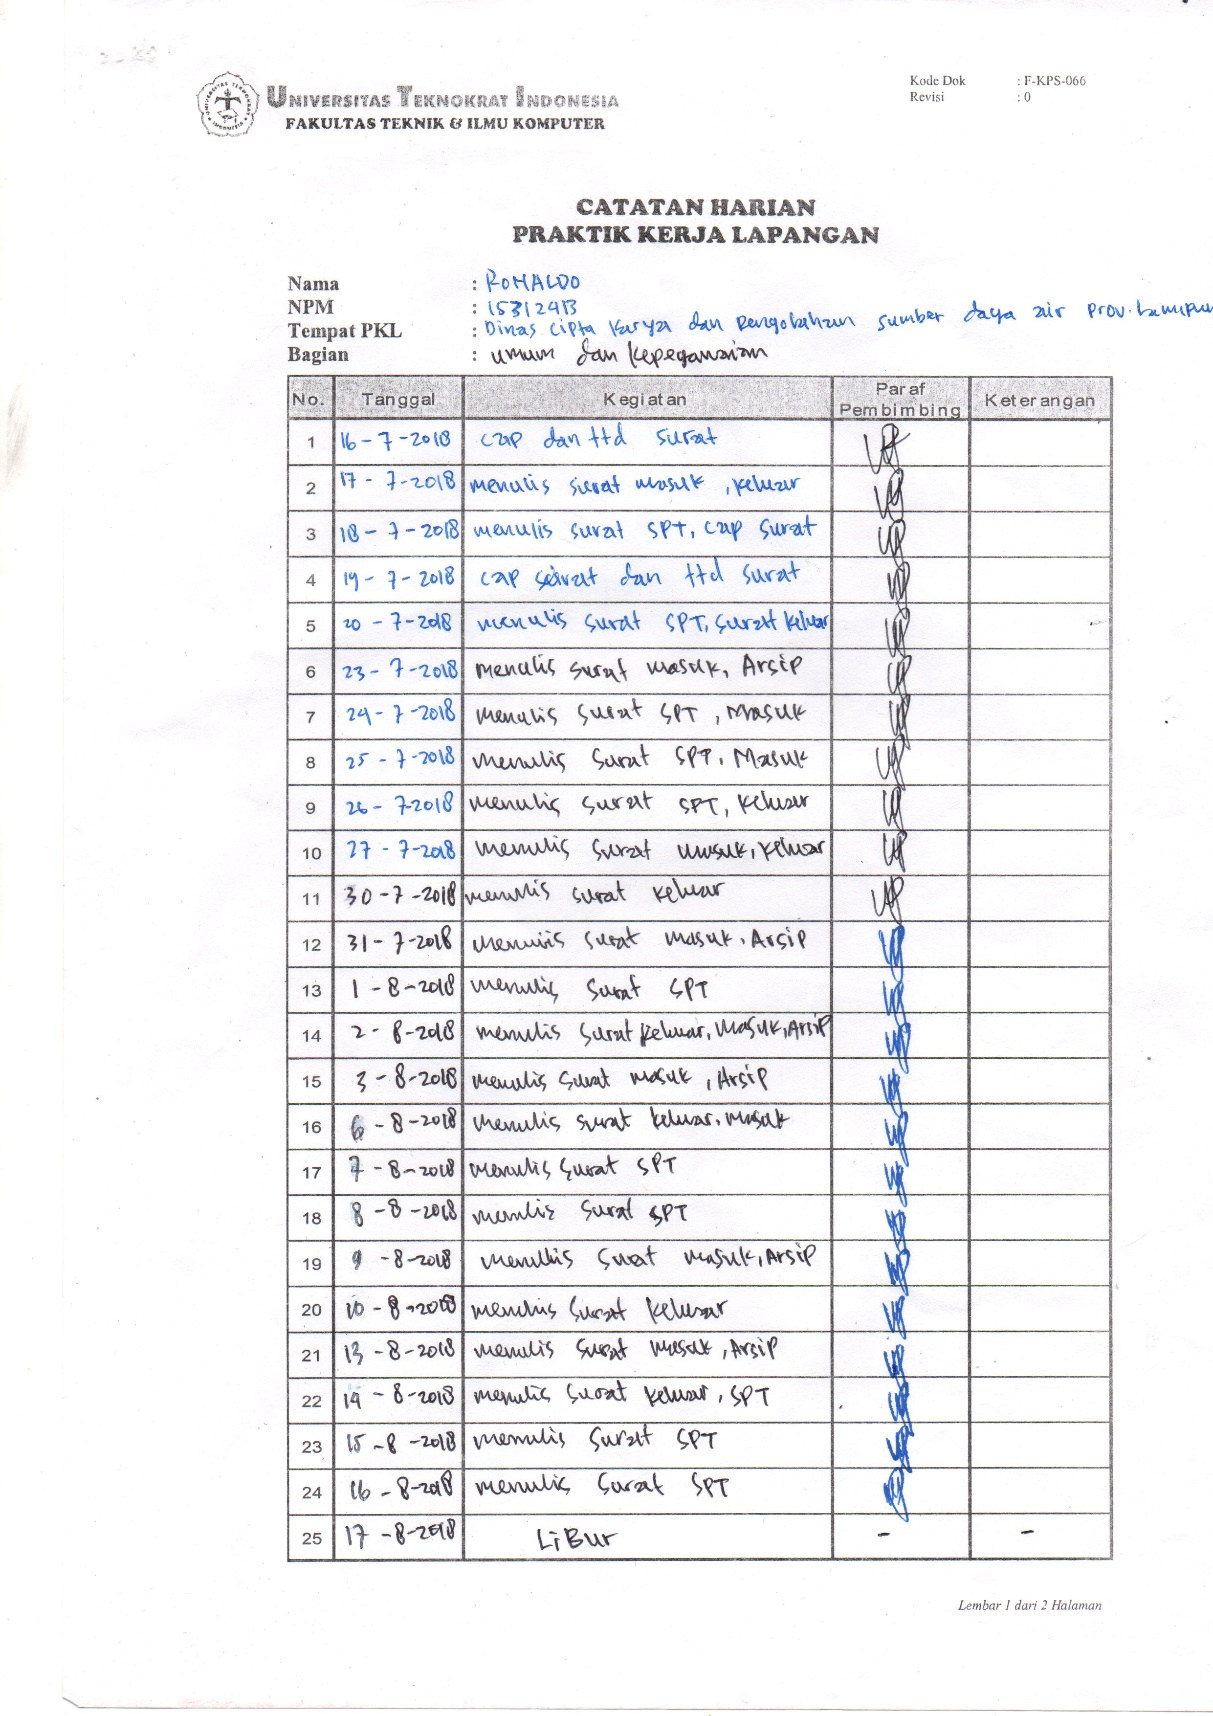 Kode Dok : F-KPS-066
Revisi : 0
UNIVERSITAS TEKNOKRAT INDONESIA
FAKULTAS TEKNIK & ILMU KOMPUTER
CATATAN HARIAN
PRAKTIK KERJA LAPANGAN
Nama : ROMALDO
NPM : 15312413
Tempat PKL : Dinas Cipta Karya dan Pengolahan sumber daya air prov. Lampu
Bagian : umum dan Kepegawaian
No. Tanggal Kegiatan Paraf Pembimbing Keterangan
1 16-7-2018 cap dan ttd surat
2 17-7-2018 menulis surat masuk, keluar
3 18-7-2018 menulis surat SPT, cap surat
4 19-7-2018 cap surat dan ttd surat
5 20-7-2018 menulis surat SPT, surat keluar
6 23-7-2018 menulis surat masuk, Arsip
7 24-7-2018 menulis surat SPT, Masuk
8 25-7-2018 menulis surat SPT, Masuk
9 26-7-2018 menulis surat SPT, keluar
10 27-7-2018 menulis surat masuk, keluar
11 30-7-2018 menulis surat keluar
12 31-7-2018 menulis surat masuk, Arsip
13 1-8-2018 menulis surat SPT
14 2-8-2018 menulis surat keluar, masuk, Arsip
15 3-8-2018 menulis surat masuk, Arsip
16 6-8-2018 menulis surat keluar, masuk
17 7-8-2018 menulis surat SPT
18 8-8-2018 menulis surat SPT
19 9-8-2018 menulis surat masuk, Arsip
20 10-8-2018 menulis surat keluar
21 13-8-2018 menulis surat masuk, Arsip
22 14-8-2018 menulis surat keluar, SPT
23 15-8-2018 menulis surat SPT
24 16-8-2018 menulis surat SPT
25 17-8-2018 LiBur - -
Lembar 1 dari 2 Halaman